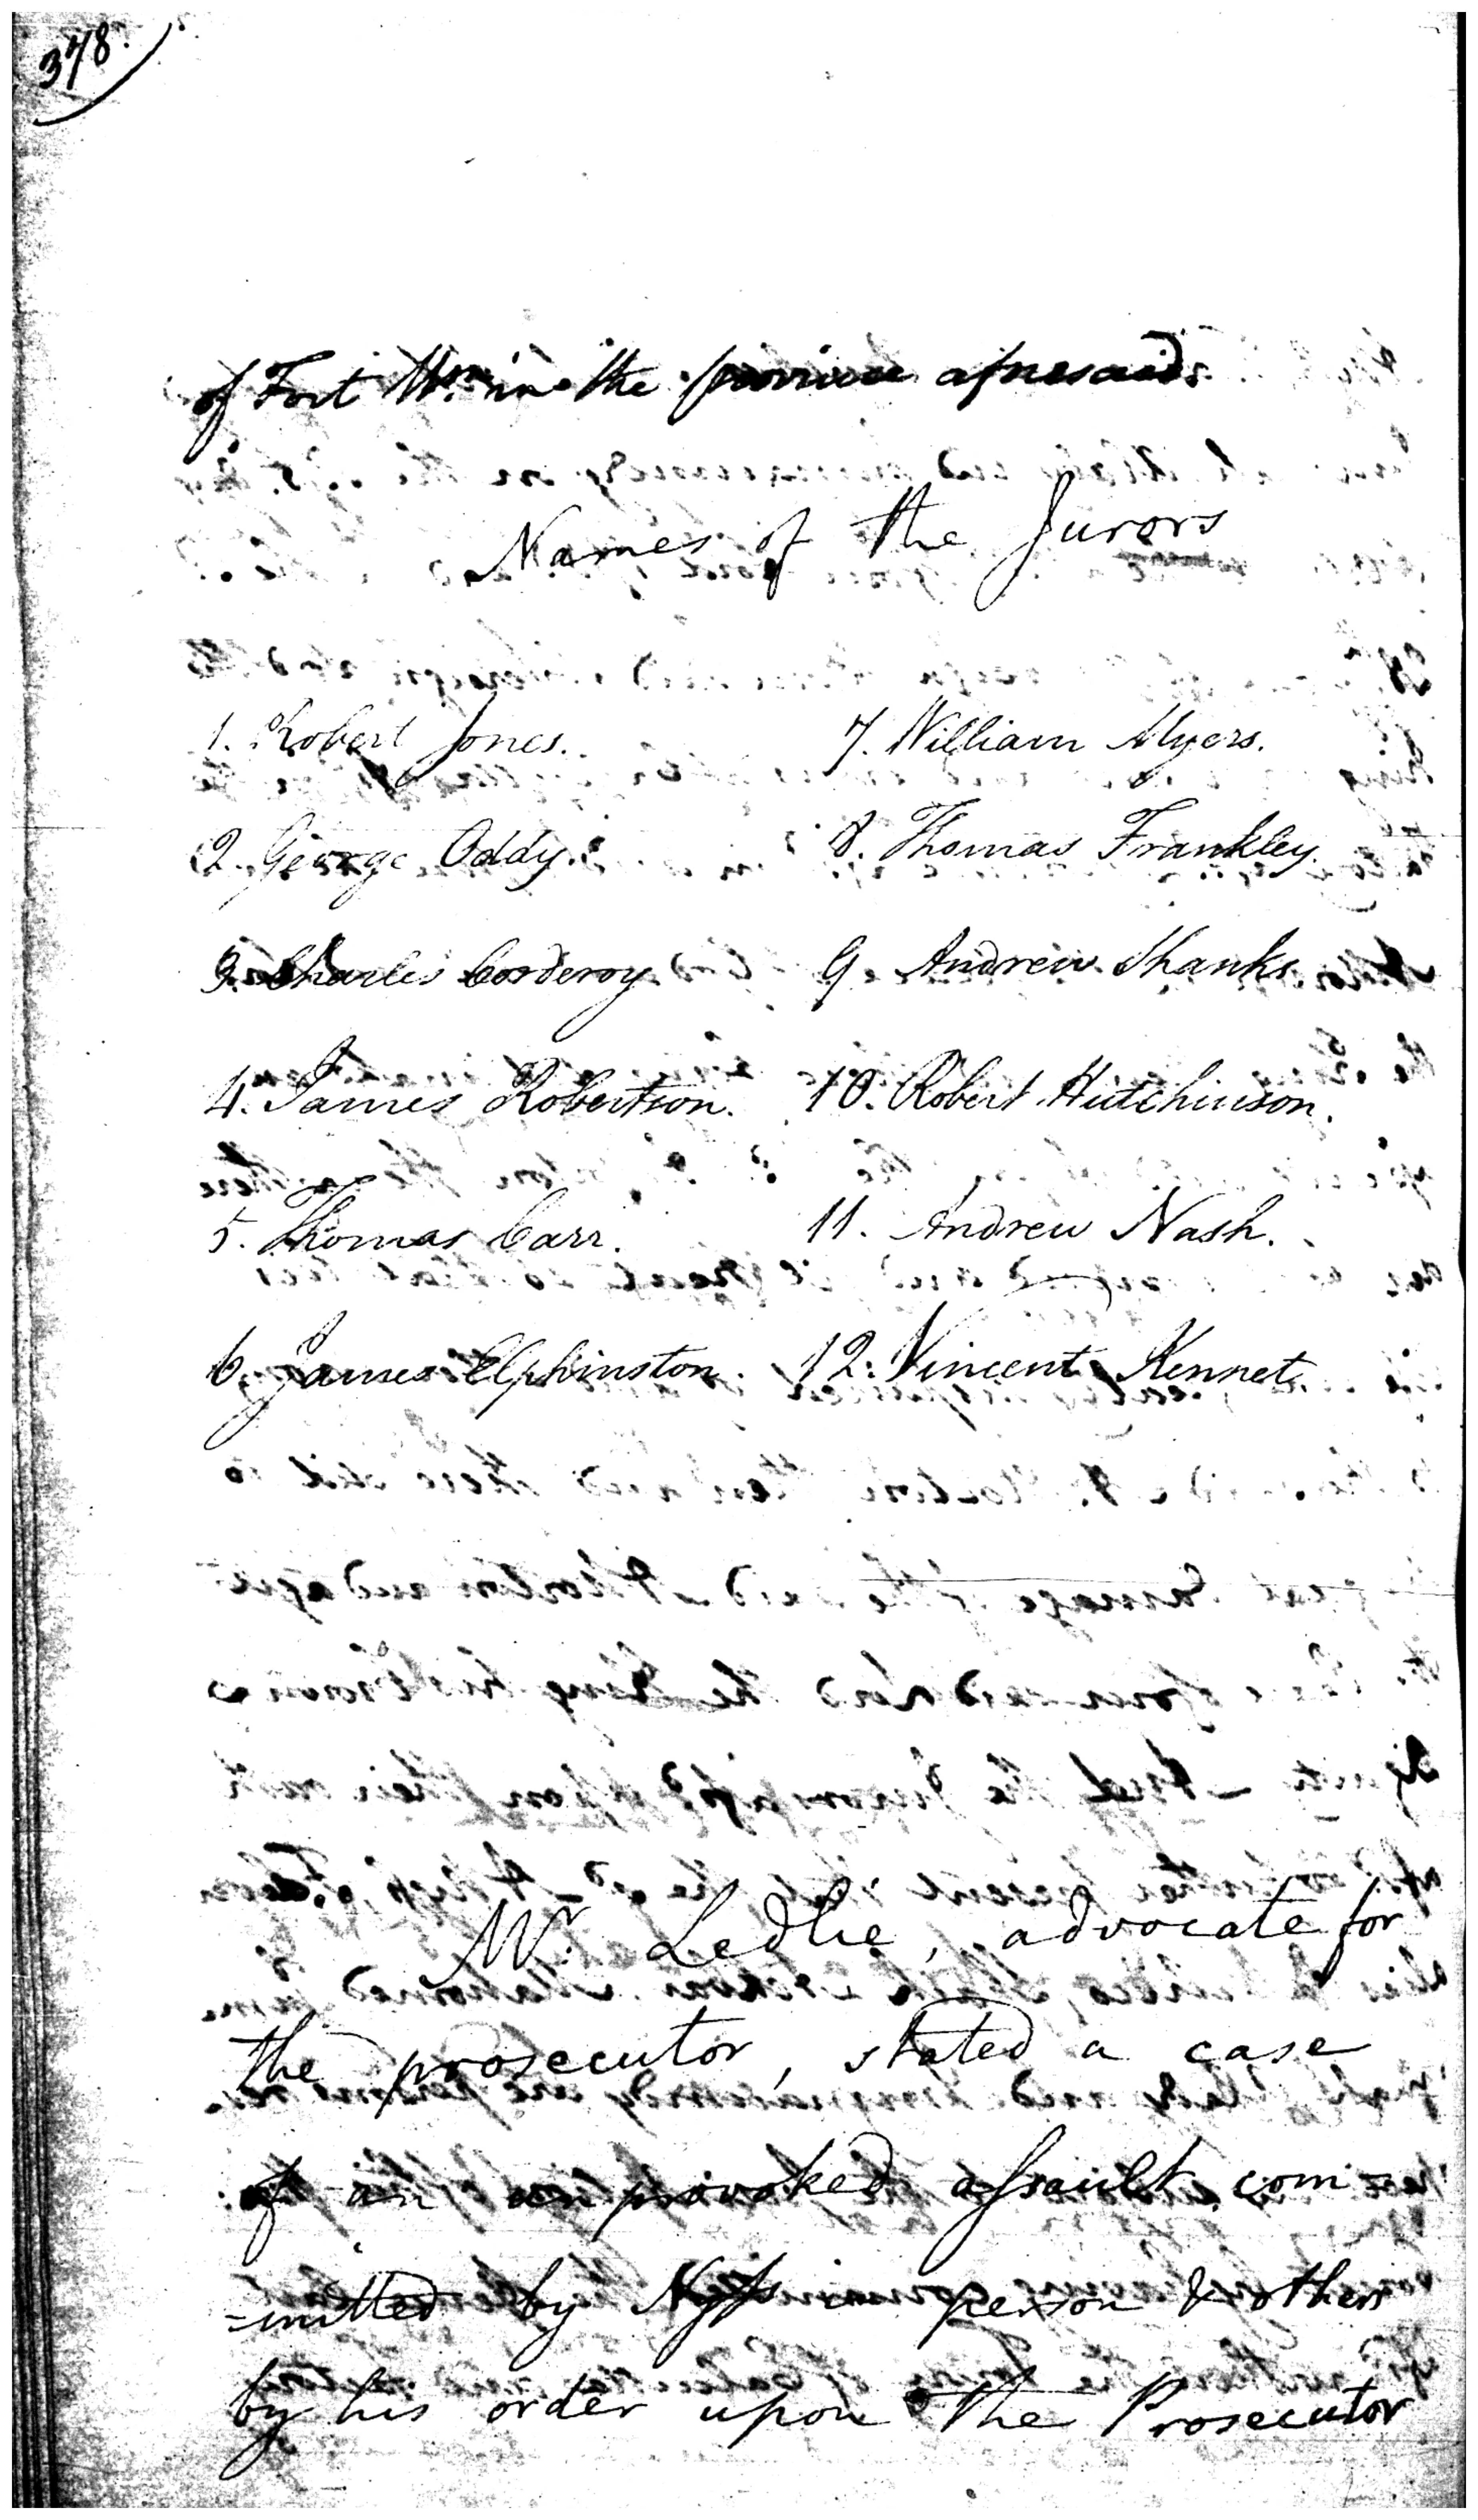 378.
of Fort Wm. in the province aforesaid.
Names of the Jurors
1. Robert Jones.
7. William Myers.
2. George Oddy.
8. Thomas Frankley.
3. Charles Corderoy
9. Andrew Shanks
4. James Robertson.
10. Robert Hutchinson.
5. Thomas Carr.
11. Andrew Nash.
6. James Elphinston.
12. Vincent Kennet
Mr. Ledlie, advocate for
the prosecutor, stated a case
of an unprovoked assault com
=mitted by in person & others
by his order upon the Prosecutor